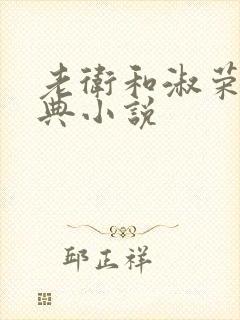 老衛和淑荣
典小説
邱正祥